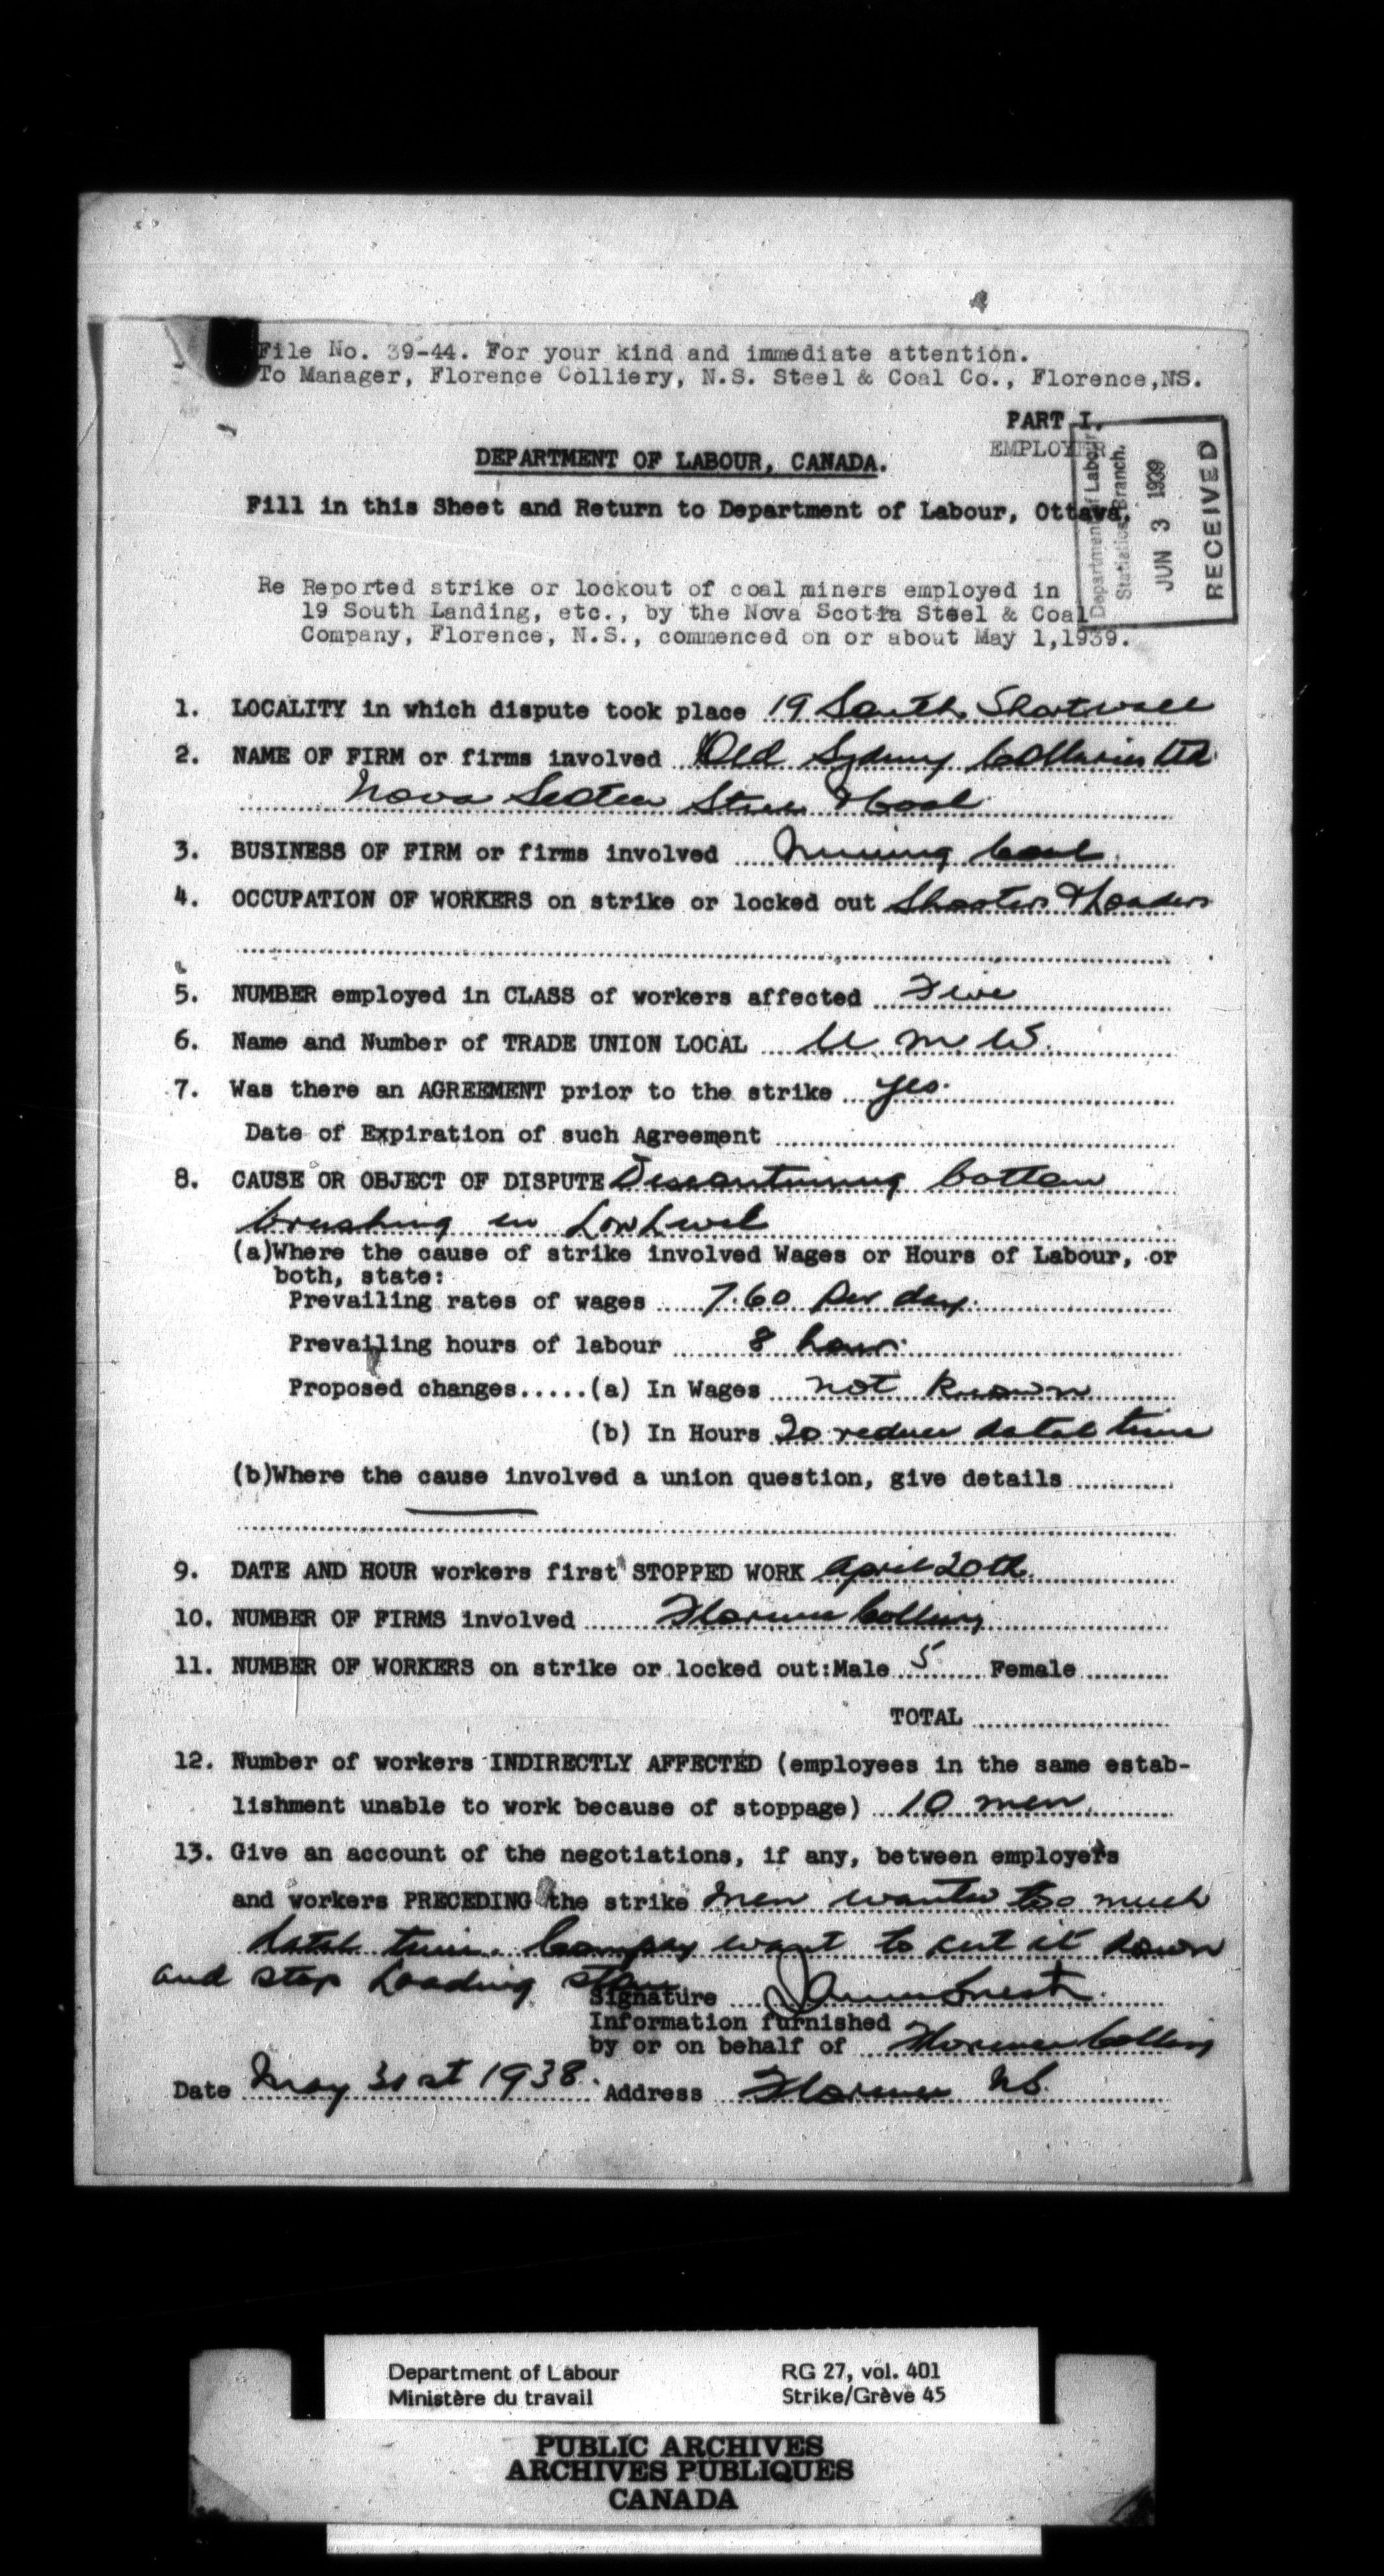 File No. 39-44. For your kind and immediate attention.
To Manager, Florence Colliery, N.S. Steel & Coal Co., Florence,NS.
PART I.
EMPLOYER
DEPARTMENT OF LABOUR, CANADA.
Fill in this Sheet and Return to Department of Labour, Ottawa.
Department of Labour
Statistics Branch.
JUN 3 1939
RECEIVED
Re Reported strike or lockout of coal miners employed in
19 South Landing, etc., by the Nova Scotia Steel & Coal
Company, Florence, N.S., commenced on or about May 1,1939.
1. LOCALITY in which dispute took place 19 South Shortwall
2. NAME OF FIRM or firms involved Old Sydney Collieries Ltd
Nova Scotia Steel & Coal
3. BUSINESS OF FIRM or firms involved Mining Coal
4. OCCUPATION OF WORKERS on strike or locked out Shooters & Loaders
5. NUMBER employed in CLASS of workers affected Five
6. Name and Number of TRADE UNION LOCAL U. M. W.
7. Was there an AGREEMENT prior to the strike yes.
Date of Expiration of such Agreement
8. CAUSE OR OBJECT OF DISPUTE Discontinuing bottom
brushing in Low Level
(a)Where the cause of strike involved Wages or Hours of Labour, or
both, state:
Prevailing rates of wages 7.60 per day.
Prevailing hours of labour 8 hour.
Proposed changes.....(a) In Wages not known
(b) In Hours To reduce datal time
(b)Where the cause involved a union question, give details
9. DATE AND HOUR workers first STOPPED WORK April 20th.
10. NUMBER OF FIRMS involved Florence Colliery
11. NUMBER OF WORKERS on strike or locked out:Male 5 Female
TOTAL
12. Number of workers INDIRECTLY AFFECTED (employees in the same estab-
lishment unable to work because of stoppage) 10 men.
13. Give an account of the negotiations, if any, between employers
and workers PRECEDING the strike Men wanted too much
datal time. Company want to cut it down
and stop loading stone
Signature James
Information furnished
by or on behalf of Florence Colliery
Date May 31st 1938. Address Florence NS.
Department of Labour
Ministère du travail
RG 27, vol. 401
Strike/Grève 45
PUBLIC ARCHIVES
ARCHIVES PUBLIQUES
CANADA